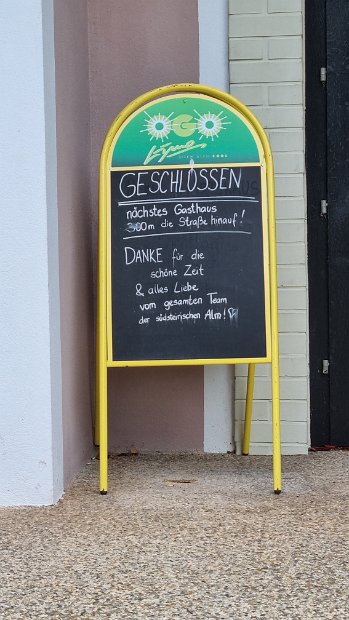 GESCHLOSSEN
nächstes Gasthaus
300m die Straße hinauf!
DANKE für die
schöne Zeit
& alles Liebe
vom gesamten Team
der südsteirischen Alm!